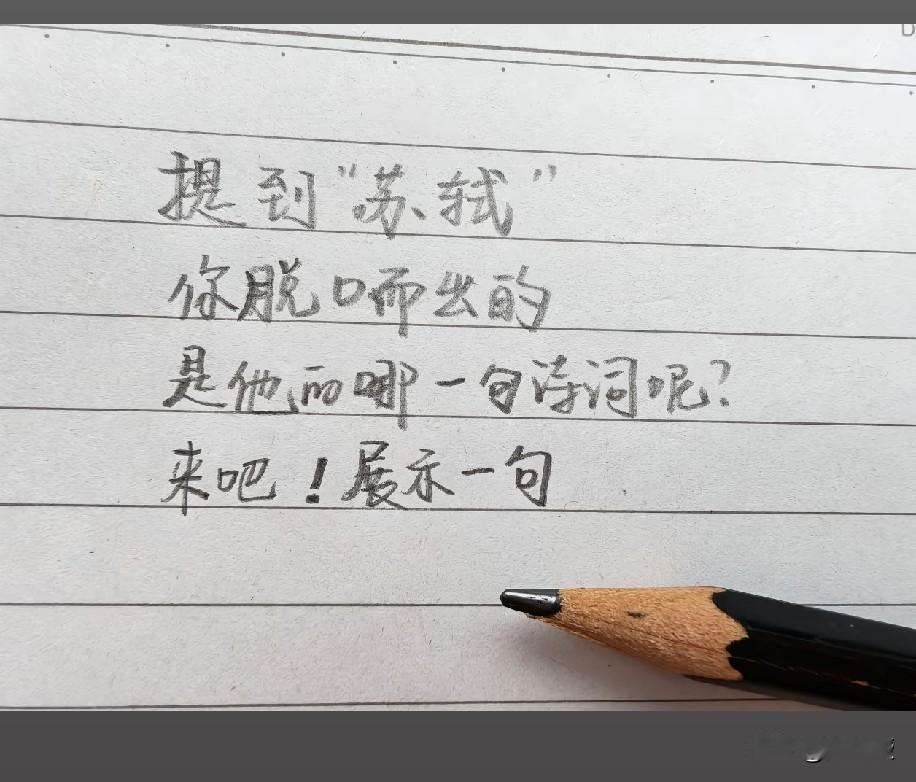 提到“苏轼”
你脱口而出的
是他的哪一句诗词呢？
来吧！展示一句